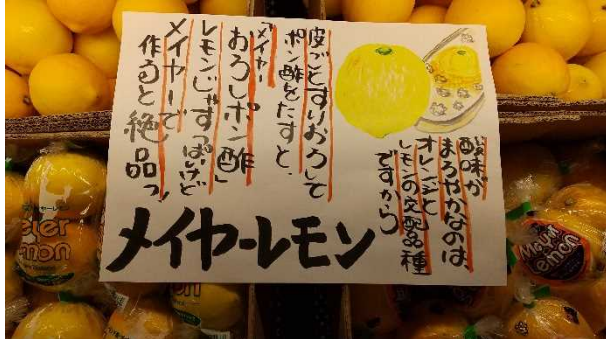 酸味が
まろやかなのは
オレンジと
レモンの交配品種
ですから
皮ごとすりおろして
ポン酢をたすと、
「メイヤー
おろしポン酢」
レモンじゃすっぱいけど
メイヤーで
作ると絶品っ!
メイヤーレモン
eier
emon
Mayer
Lemon